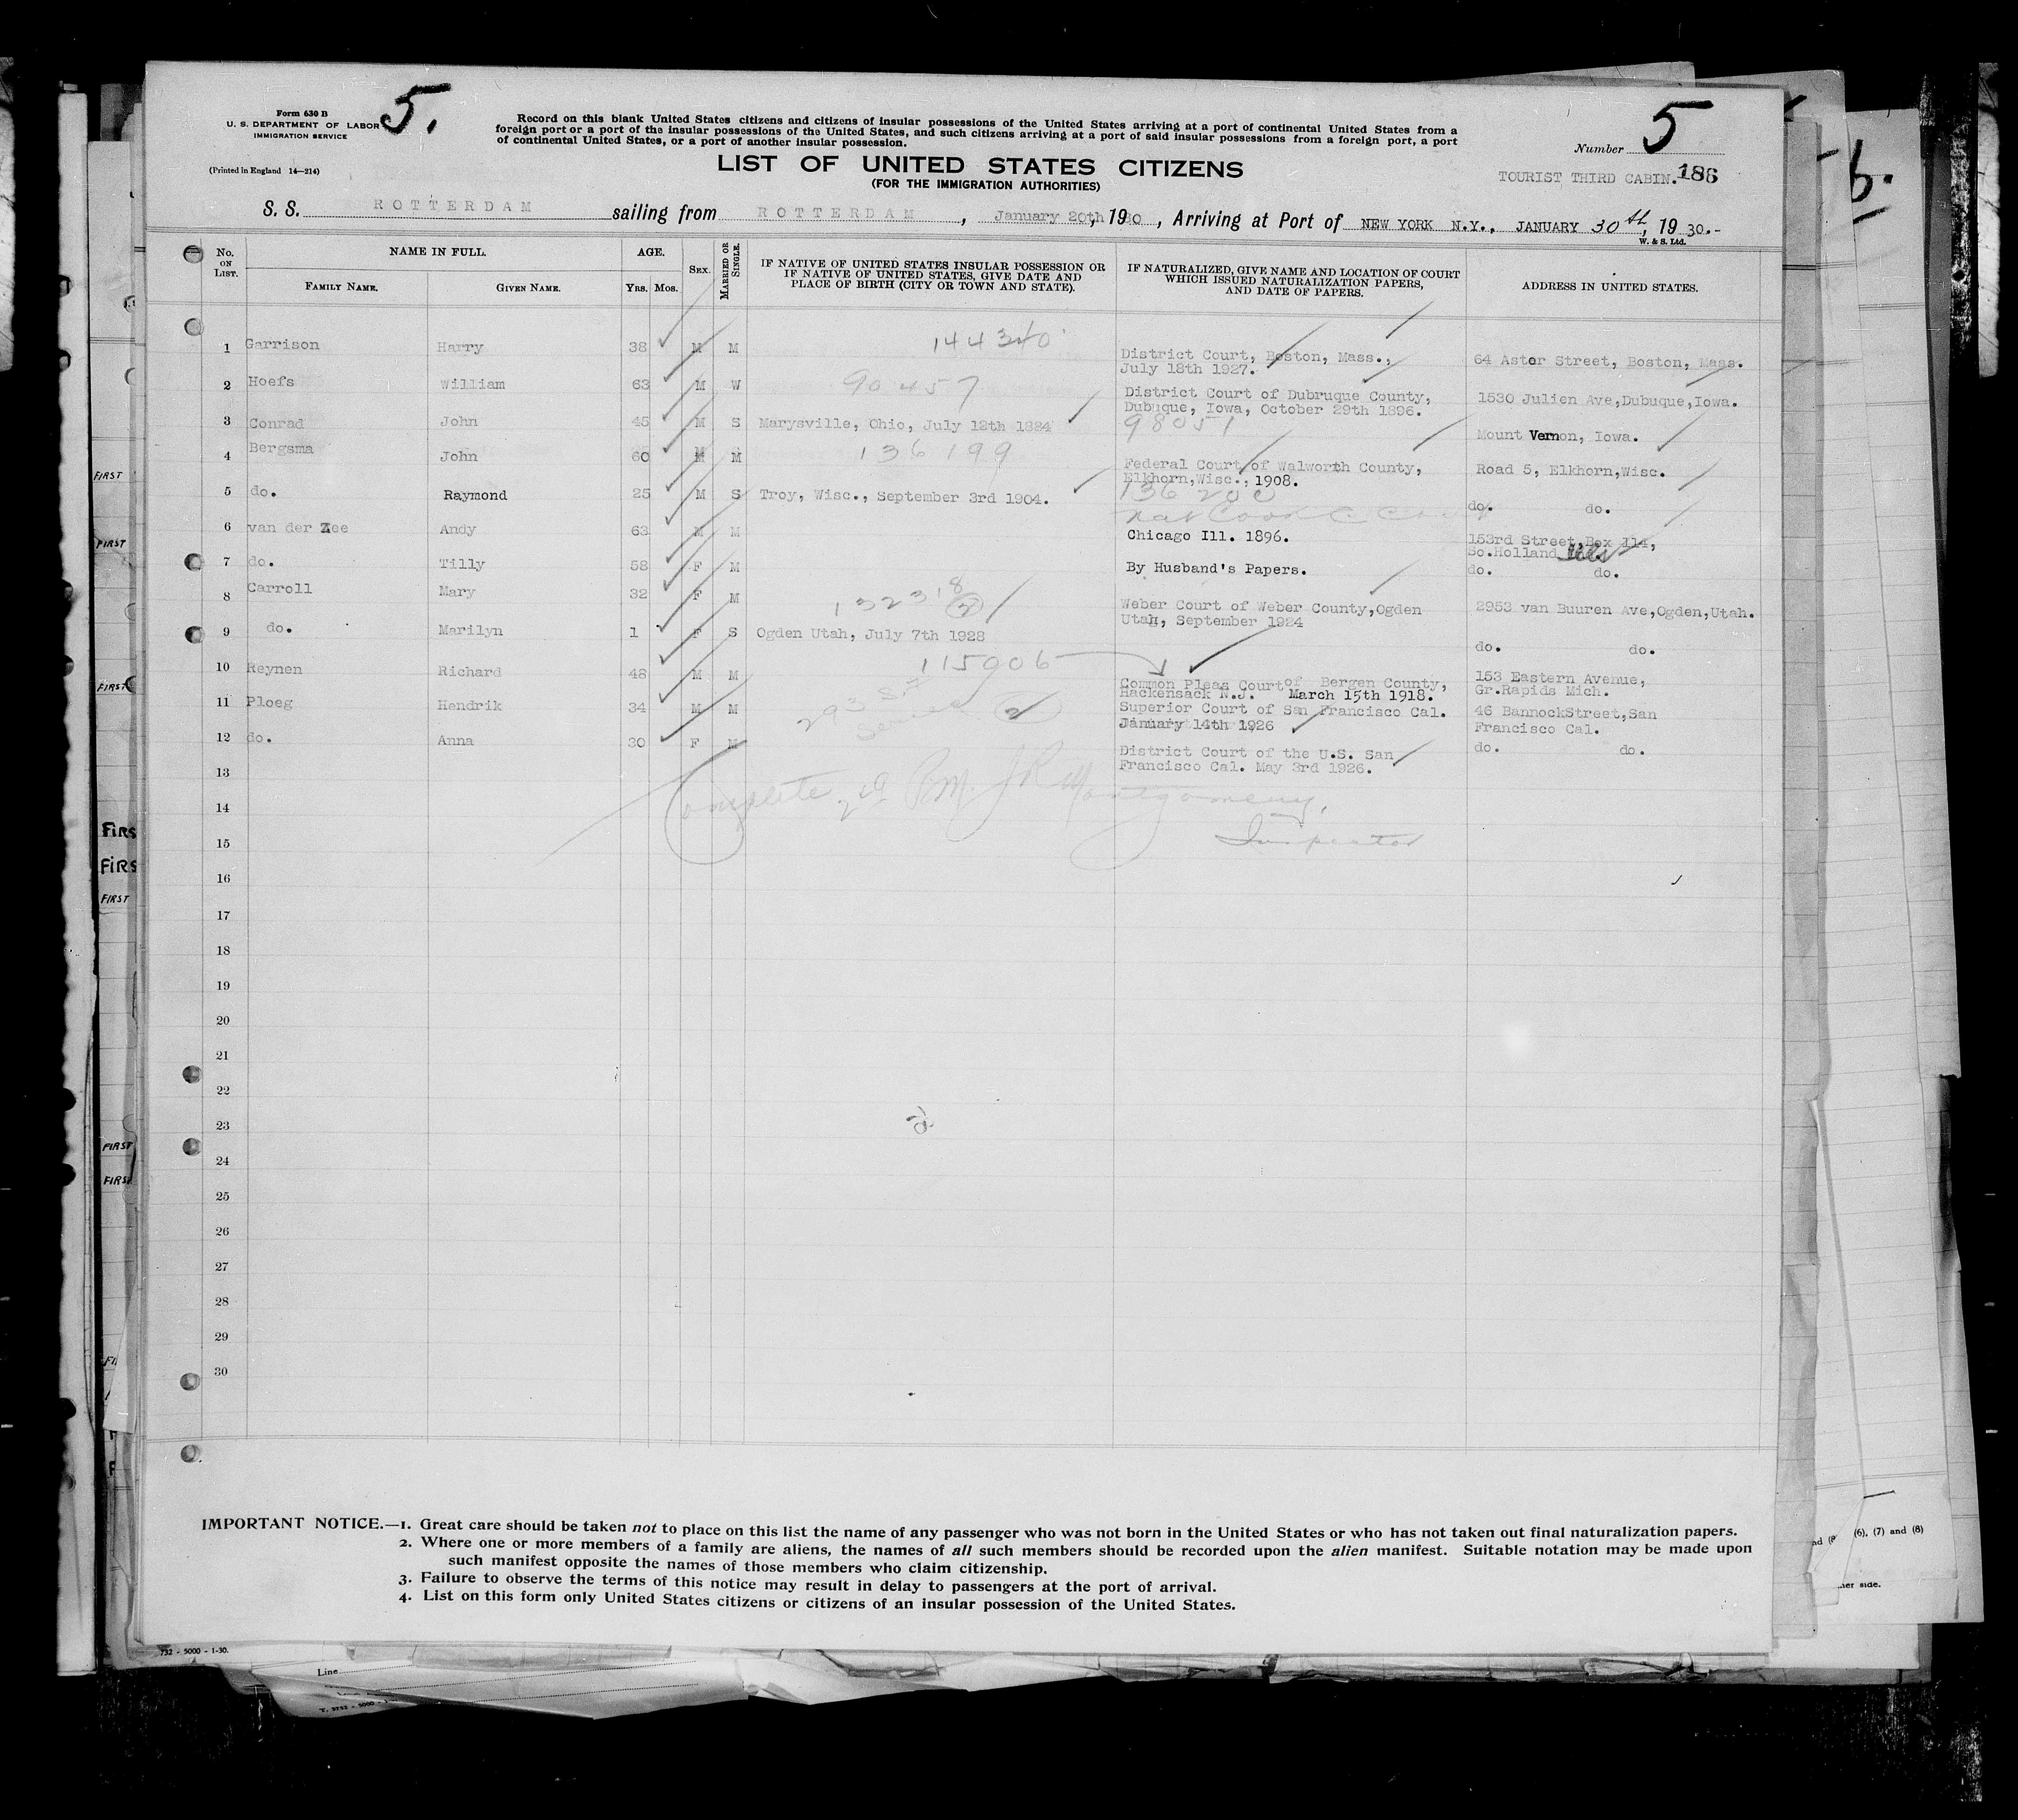 5.
Form 630 B
U. S. DEPARTMENT OF LABOR
IMMIGRATION SERVICE
(Printed in England 14—214)
Record on this blank United States citizens and citizens of insular possessions of the United States arriving at a port of continental United States from a
foreign port or a port of the insular possessions of the United States, and such citizens arriving at a port of said insular possessions from a foreign port, a port
of continental United States, or a port of another insular possession.
LIST OF UNITED STATES CITIZENS
(FOR THE IMMIGRATION AUTHORITIES)
Number 5
TOURIST THIRD CABIN. 186
S. S. ROTTERDAM sailing from ROTTERDAM, January 20th, 1930, Arriving at Port of NEW YORK N.Y., JANUARY 30th, 19 30.-
W. & S. Ltd.
No. ON LIST.
NAME IN FULL.
FAMILY NAME.
GIVEN NAME.
AGE.
YRS. MOS.
SEX.
MARRIED OR SINGLE.
IF NATIVE OF UNITED STATES INSULAR POSSESSION OR
IF NATIVE OF UNITED STATES, GIVE DATE AND
PLACE OF BIRTH (CITY OR TOWN AND STATE).
IF NATURALIZED, GIVE NAME AND LOCATION OF COURT
WHICH ISSUED NATURALIZATION PAPERS,
AND DATE OF PAPERS.
ADDRESS IN UNITED STATES.
1 Garrison Harry 38 M M 144340 District Court, Boston, Mass., 64 Astor Street, Boston, Mass.
July 18th 1927.
2 Hoefs William 63 M W 90457 District Court of Dubruque County, 1530 Julien Ave,Dubuque,Iowa.
Dubuque, Iowa, October 29th 1896.
3 Conrad John 45 M S Marysville, Ohio, July 12th 1884 98051 Mount Vernon, Iowa.
4 Bergsma John 60 M M 136199 Federal Court of Walworth County, Road 5, Elkhorn,Wisc.
Elkhorn,Wisc., 1908.
5 do. Raymond 25 M S Troy, Wisc., September 3rd 1904. 136200 do. do.
6 van der Zee Andy 63 M M Chicago Ill. 1896. 153rd Street,Box 114,
So.Holland Ills
7 do. Tilly 58 F M By Husband's Papers. do. do.
8 Carroll Mary 32 F M 132318 2 Weber Court of Weber County,Ogden 2953 van Buuren Ave,Ogden,Utah.
Utah, September 1924
9 do. Marilyn 1 F S Ogden Utah, July 7th 1928 do. do.
10 Reynen Richard 48 M M 115906 Common Pleas Court of Bergen County, 153 Eastern Avenue,
Hackensack N.J. March 15th 1918. Gr.Rapids Mich.
11 Ploeg Hendrik 34 M M 2 Superior Court of San Francisco Cal. 46 BannockStreet,San
January 14th 1926 Francisco Cal.
12 do. Anna 30 F M District Court of the U.S. San do. do.
Francisco Cal. May 3rd 1926.
13
Complete J R Montgomery,
14
Inspector
15
16
17
18
19
20
21
22
23
24
25
26
27
28
29
30
IMPORTANT NOTICE.—1. Great care should be taken not to place on this list the name of any passenger who was not born in the United States or who has not taken out final naturalization papers.
2. Where one or more members of a family are aliens, the names of all such members should be recorded upon the alien manifest. Suitable notation may be made upon
such manifest opposite the names of those members who claim citizenship.
3. Failure to observe the terms of this notice may result in delay to passengers at the port of arrival.
4. List on this form only United States citizens or citizens of an insular possession of the United States.
732 - 5000 - 1-30.
Line
FIRST
FIRST
FIRST
FIRS
FIRS
FIRST
FIRST
FIRST
6.
(6), (7) and (8)